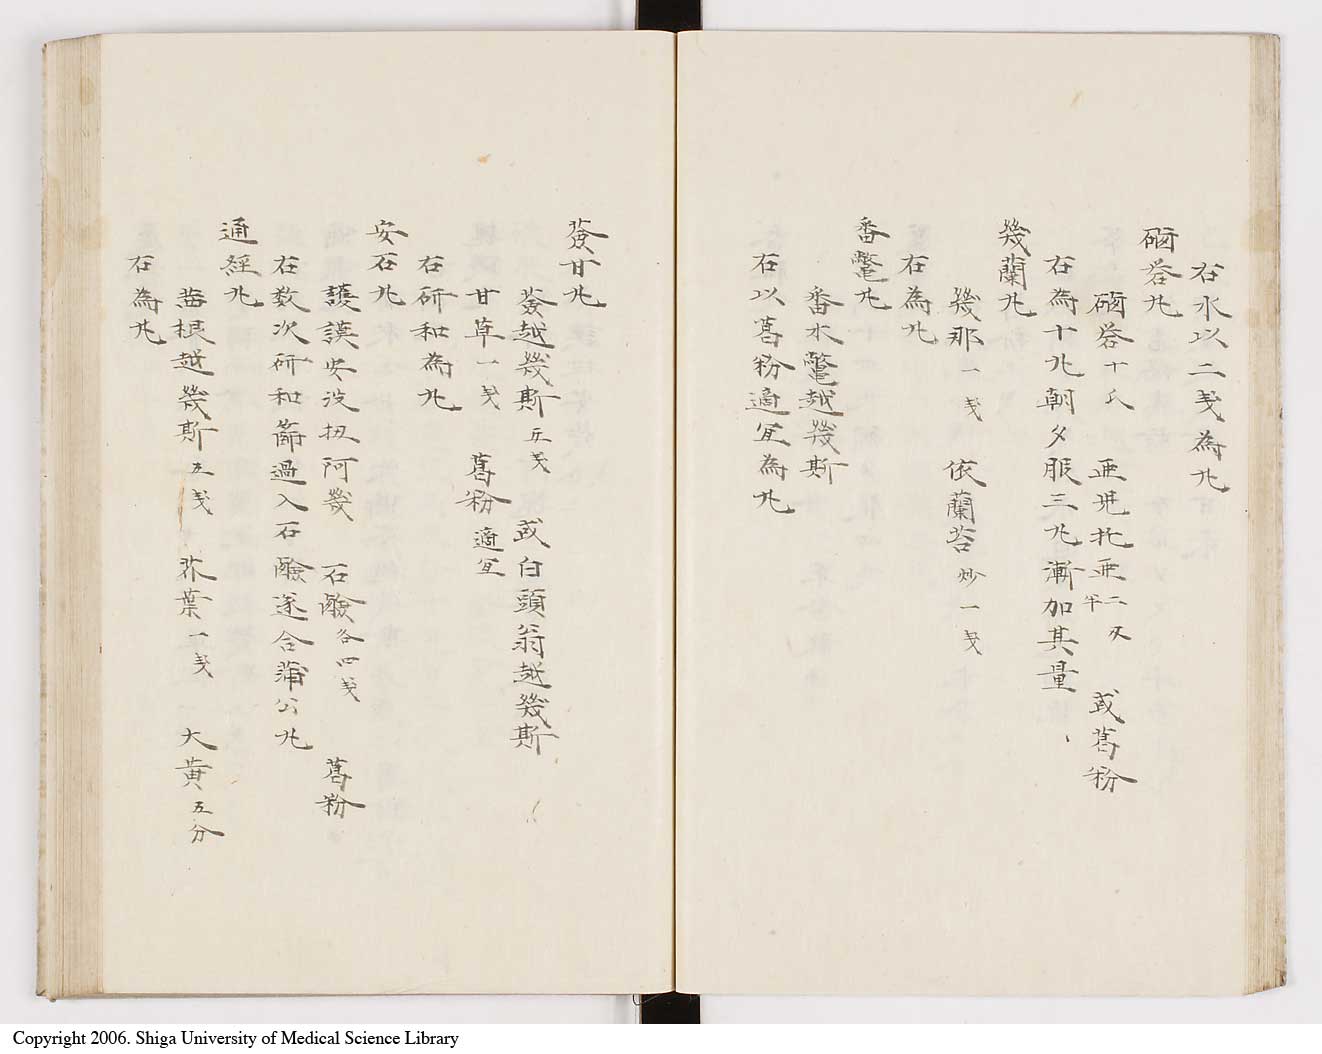 右水以二戔為丸
硇荅丸
硇荅十氏 亜児扎亜二和半 或葛粉
右為十丸朝夕服三丸漸加其量
幾蘭丸
幾那一戔 依蘭苔炒一戔
右為丸
番鼈丸
番水鼈越幾斯
右以葛粉適宜為丸
莶甘丸
莶越幾斯五戔 或白頭翁越幾斯
甘草一戔 葛粉適宜
右研和為丸
安石丸
護謨安没扭阿幾 石鹸各四戔 葛粉
右数次研和篩過入石鹸逐合蒲公丸
通経丸
茜根越幾斯五戔 茶葉一戔 大黄五分
右為丸
Copyright 2006. Shiga University of Medical Science Library